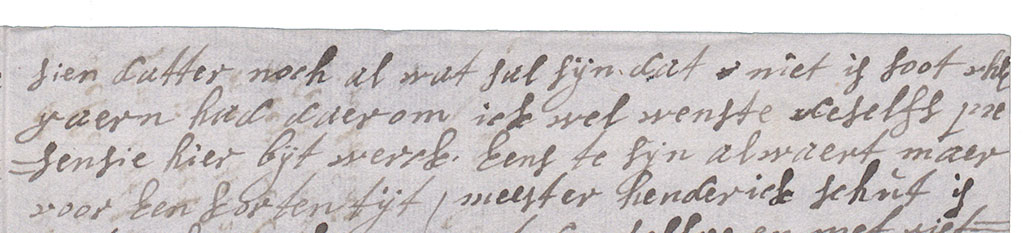 sien datter noch al wat sal sijn dat niet is soot uhE
gaern had daerom ick wel wenste deselfs pre
sensie hier bijt werck Eens te sijn alwaert maer
voor Een korten tijt / meester henderick schut is
en met niet